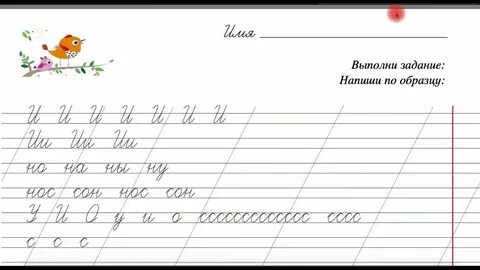 Имя
Выполни задание:
Напиши по образцу:
И И И И И И И
Ии Ии Ии
но на ны ну
нос сон нос сон
У И О у и о ссссссссссссс сссс
с с с